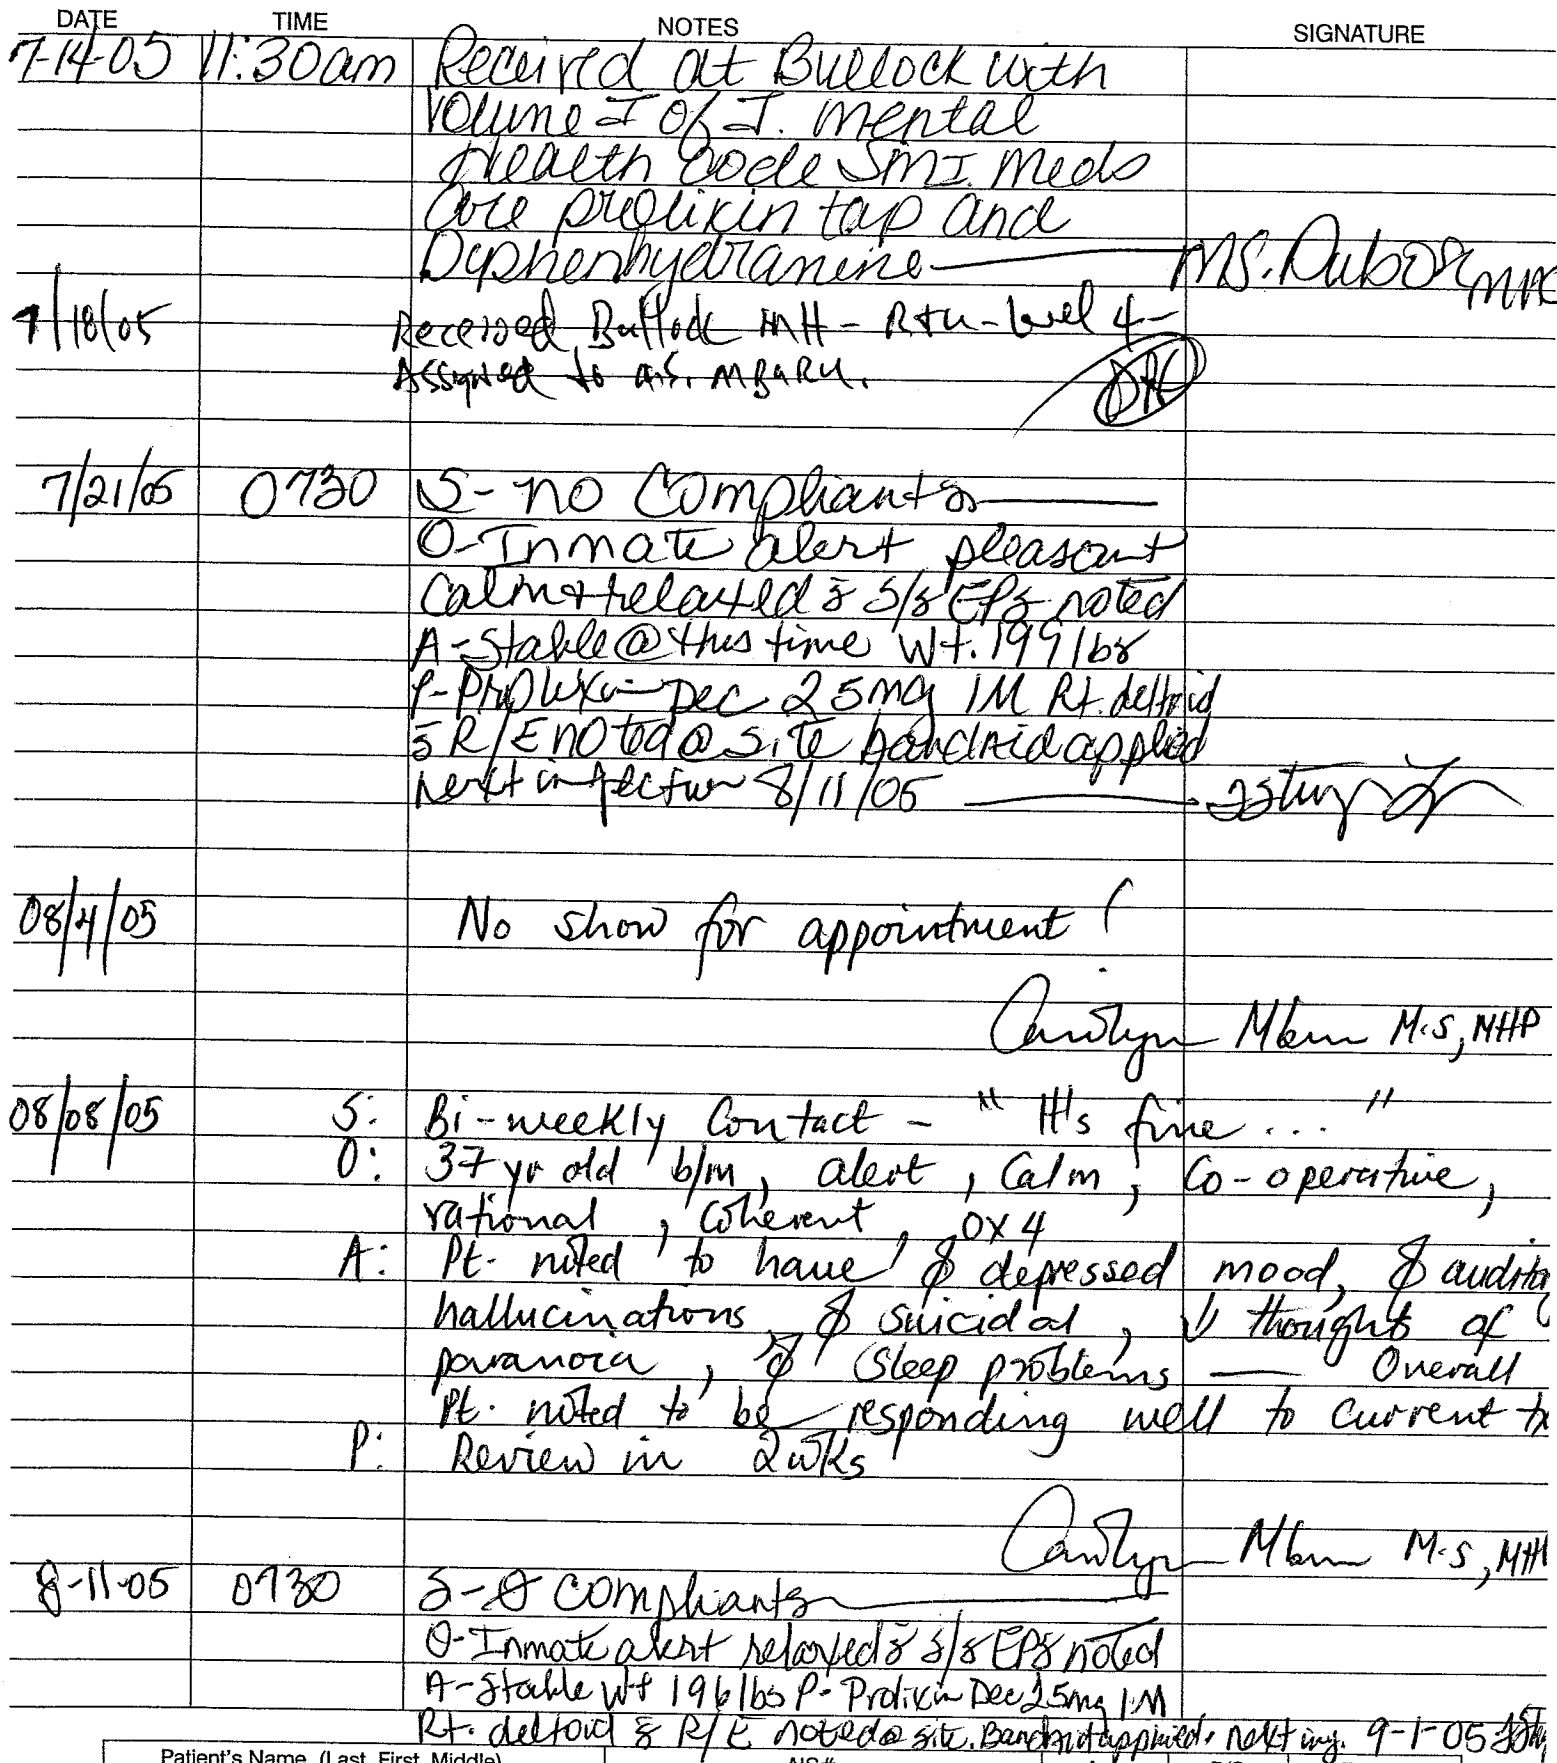 DATE TIME NOTES SIGNATURE
7-14-05 11:30am Received at Bullock with
Volume I of I. mental
Health Code SMI. Meds
are prolixin tap and
Diphenhydramine MS.
7/18/05 Received Bullock MH - RTU - level 4 -
Assigned to MBARU.
7/21/05 0730 S- no Compliants
O- Inmate alert pleasant
Calm + relaxed s̄ S/s EPS noted
A- Stable @ this time Wt. 199 lbs
P- Prolixin Dec 25mg IM Rt. deltoid
s̄ R/E noted @ site bandaid applied
next injection 8/11/05
08/4/05 No show for appointment !
Carolyn M.S, MHP
08/08/05 S: Bi-weekly Contact - " It's fine ... "
O: 37 yr old b/m, alert, Calm, Co-operative,
rational, Coherent, OX4
A: Pt. noted to have ∅ depressed mood, ∅ audito
hallucinations, ∅ suicidal, ↓ thoughts of
paranoia, ∅ Sleep problems — Overall
Pt. noted to be responding well to current tx
P: Review in 2wks
Carolyn M.S, MH
8-11-05 0730 S- ∅ compliants
O- Inmate alert relaxed s̄ S/s EPS noted
A- Stable Wt 196 lbs P- Prolixin Dec 25mg IM
Rt. deltoid s̄ R/E noted @ site. Bandaid applied. next inj. 9-1-05
Patient's Name (Last, First, Middle) AIS#